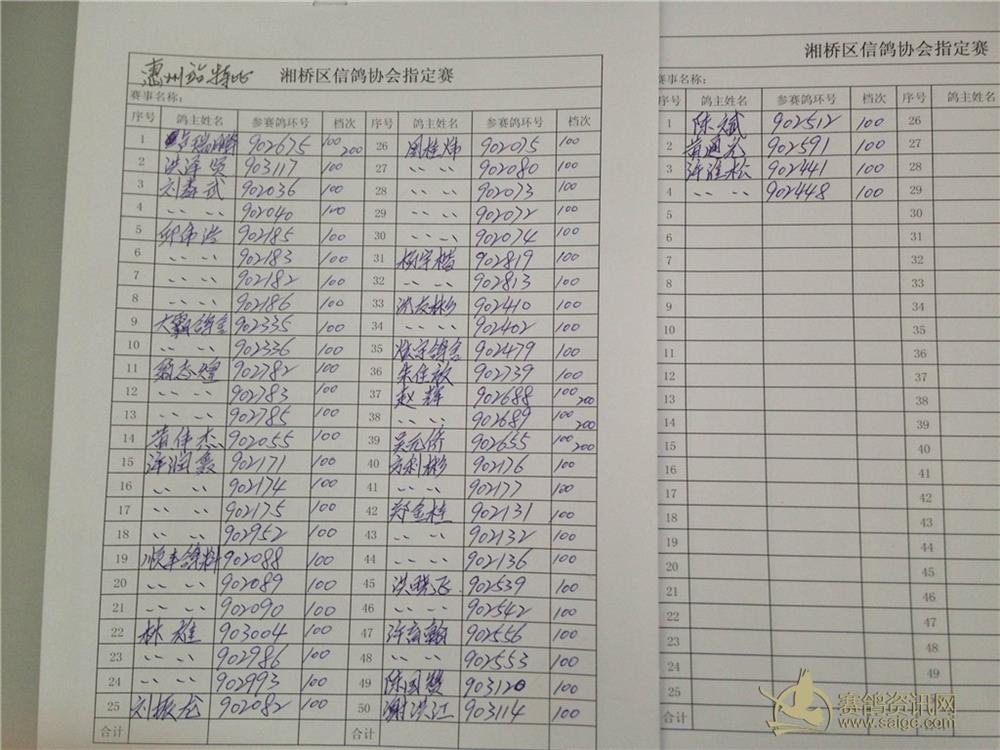 惠州站特比 湘桥区信鸽协会指定赛
赛事名称:
序号 鸽主姓名 参赛鸽环号 档次 序号 鸽主姓名 参赛鸽环号 档次
1 902675 100 200 26 902075 100
2 洪泽贤 903117 100 27 〃 〃 902080 100
3 902036 100 28 〃 〃 902073
4 〃 〃 902040 100 29 〃 〃 902072 100
5 邱伟浩 902185 100 30 〃 〃 902074 100
6 〃 〃 902183 100 31 902819 100
7 〃 〃 902182 100 32 〃 〃 902813 100
8 〃 〃 902186 100 33 902410 100
9 902335 100 34 〃 〃 902402 100
10 〃 〃 902336 100 35 902479 100
11 902782 100 36 902739 100
12 〃 〃 902783 100 37 赵辉 902688 100 200
13 〃 〃 902785 100 38 〃 〃 902689 100 200
14 黄伟杰 902055 100 39 902655 100 200
15 902171 100 40 方利彬 902176 100
16 〃 〃 902174 100 41 〃 〃 902177 100
17 〃 〃 902175 100 42 郑金柱 902131 100
18 〃 〃 902952 100 43 〃 〃 902132 100
19 902088 100 44 〃 〃 902136 100
20 〃 〃 902089 100 45 洪晓飞 902539 100
21 〃 〃 902090 100 46 〃 〃 902542 100
22 林雄 903004 100 47 902556 100
23 〃 〃 902986 100 48 〃 〃 902553 100
24 〃 〃 902993 100 49 陈国贤 903120 100
25 刘振龙 902082 100 50 谢洪江 903114 100
合计 合计
湘桥区信鸽协会指定赛
赛事名称:
序号 鸽主姓名 参赛鸽环号 档次 序号 鸽主姓名
1 陈斌 902512 100 26
2 902591 100 27
3 许维松 902441 100 28
4 〃 〃 902448 100 29
5 30
6 31
7 32
8 33
9 34
10 35
11 36
12 37
13 38
14 39
15 40
16 41
17 42
18 43
19 44
20 45
21 46
22 47
23 48
24 49
25
合计
赛鸽资讯网
www.saige.com